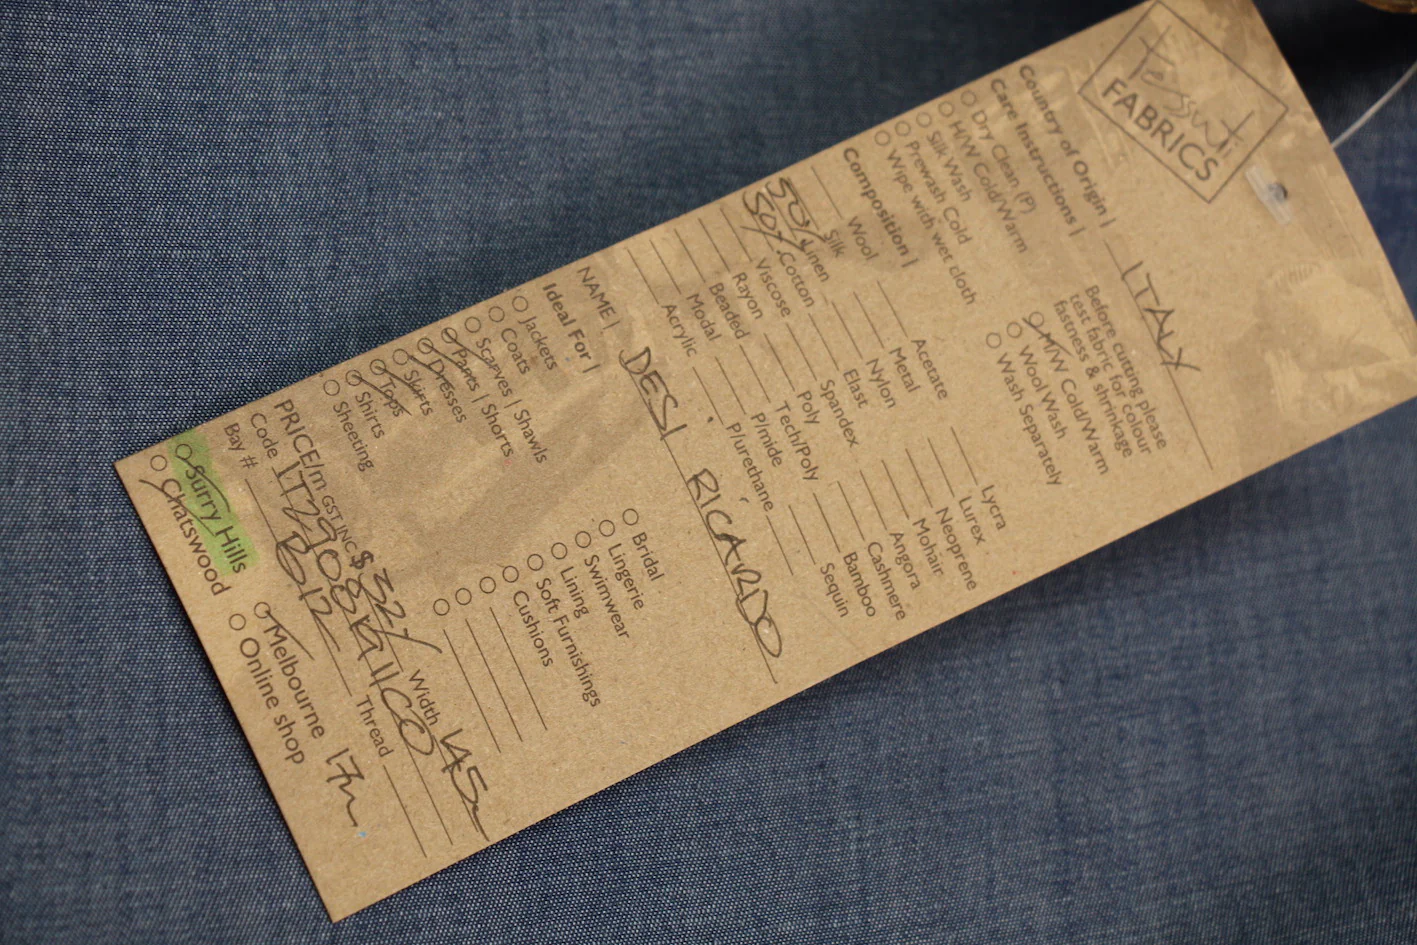 Tessuti
FABRICS
Country of Origin | ITALY
Care Instructions |
Before cutting please
test fabric for colour
fastness & shrinkage
Dry Clean (P)
H/W Cold/Warm
Silk Wash
Prewash Cold
Wipe with wet cloth
M/W Cold/Warm
Wool Wash
Wash Separately
Composition |
Wool
Silk
50% Linen
50% Cotton
Viscose
Rayon
Beaded
Modal
Acrylic
Acetate
Metal
Nylon
Elast
Spandex
Poly
Tech/Poly
P/mide
P/urethane
Lycra
Lurex
Neoprene
Mohair
Angora
Cashmere
Bamboo
Sequin
NAME | DESI RICARDO
Ideal For |
Jackets
Coats
Scarves | Shawls
Pants | Shorts
Dresses
Skirts
Tops
Shirts
Sheeting
Bridal
Lingerie
Swimwear
Lining
Soft Furnishings
Cushions
PRICE/m GST INC $ 32/ Width 145
Code
Bay # B12 Thread
Surry Hills
Chatswood
Melbourne 17m
Online shop